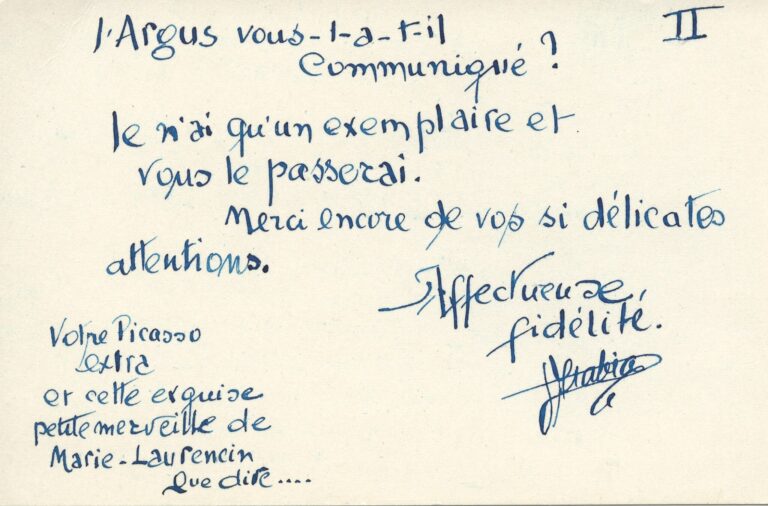 II
l'Argus vous-l-a-t-il
Communiqué ?
Je n'ai qu'un exemplaire et
vous le passerai.
Merci encore de vos si délicates
attentions.
Affectueuse
fidélité.
Votre Picasso
extra
et cette exquise
petite merveille de
Marie-Laurencin
que dire....